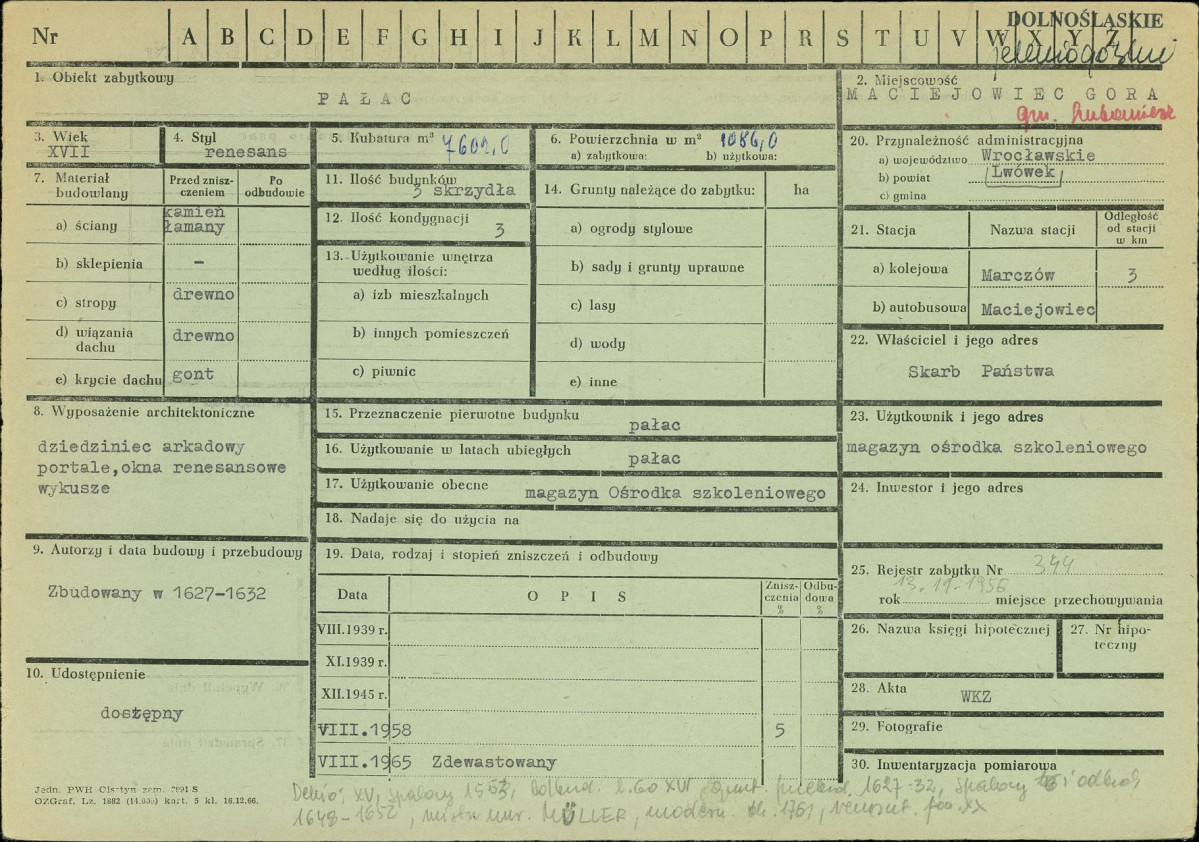 Nr A B C D E F G H I J K L M N O P R S T U V W X Y Z
DOLNOŚLĄSKIE
jeleniogórski
1. Obiekt zabytkowy
PAŁAC
2. Miejscowość
MACIEJOWIEC GORA
gm. Lubomierz
3. Wiek
XVII
4. Styl
renesans
5. Kubatura m³ 7601,0
6. Powierzchnia w m² 1086,0
a) zabytkowa: b) użytkowa:
7. Materiał budowlany
Przed znisz-
czeniem
Po
odbudowie
a) ściany kamień
łamany
b) sklepienia –
c) stropy drewno
d) wiązania
dachu drewno
e) krycie dachu gont
8. Wyposażenie architektoniczne
dziedziniec arkadowy
portale,okna renesansowe
wykusze
9. Autorzy i data budowy i przebudowy
Zbudowany w 1627-1632
10. Udostępnienie
dostępny
11. Ilość budynków
3 skrzydła
12. Ilość kondygnacji
3
13. Użytkowanie wnętrza
według ilości:
a) izb mieszkalnych
b) innych pomieszczeń
c) piwnic
14. Grunty należące do zabytku: ha
a) ogrody stylowe
b) sady i grunty uprawne
c) lasy
d) wody
e) inne
15. Przeznaczenie pierwotne budynku
pałac
16. Użytkowanie w latach ubiegłych
pałac
17. Użytkowanie obecne magazyn Ośrodka szkoleniowego
18. Nadaje się do użycia na
19. Data, rodzaj i stopień zniszczeń i odbudowy
Data O P I S
Znisz-
czenia
%
Odbu-
dowa
%
VIII.1939 r.
XI.1939 r.
XII.1945 r.
VIII.1958 5
VIII.1965 Zdewastowany
20. Przynależność administracyjna
a) województwo Wrocławskie
b) powiat Lwówek
c) gmina
21. Stacja Nazwa stacji
Odległość
od stacji
w km
a) kolejowa Marczów 3
b) autobusowa Maciejowiec
22. Właściciel i jego adres
Skarb Państwa
23. Użytkownik i jego adres
magazyn ośrodka szkoleniowego
24. Inwestor i jego adres
25. Rejestr zabytku Nr 344
13.11.1956
rok miejsce przechowywania
26. Nazwa księgi hipotecznej
27. Nr hipo-
teczny
28. Akta WKZ
29. Fotografie
30. Inwentaryzacja pomiarowa
Jedn. PWH Olsztyn zam. 2091 S
OZGraf. Lz. 1882 (14.000) kart. 5 kl. 16.12.66.
XV, spalony 1563, XVI, 1627-32, spalony i odbud.
1648-1652, MÜLLER, modern. 1761, XX